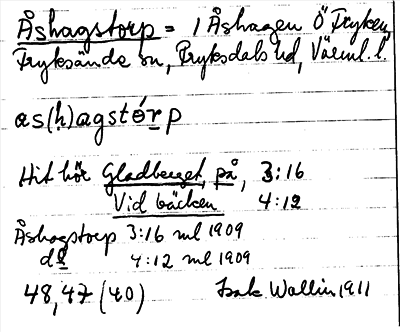 Åshagstorp = 1 Åshagen Ö Fryken,
Fryksände sn, Fryksdals hd, Värml. l.
as(h)agstórp
Hit hör Gladberget, på, 3:16
Vid bäcken 4:12
Åshagstorp 3:16 ml 1909
d:o 4:12 ml 1909
48, 47 (40) Isak Wallin 1911